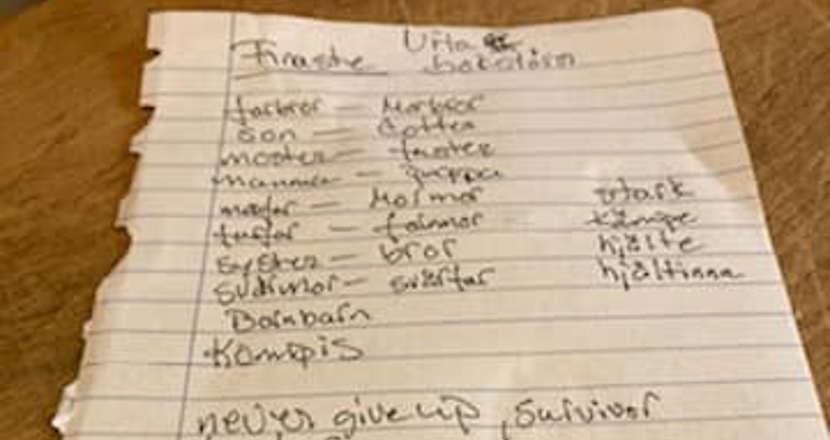 Finaste Vita
bokstäver
farbror — Morbror
son — dotter
moster — faster
mamma — pappa
morfar — Mormor stark
farfar — farmor kämpe
syster — bror hjälte
svärmor — svärfar hjältinna
Barnbarn
Kompis
never give up, survivor